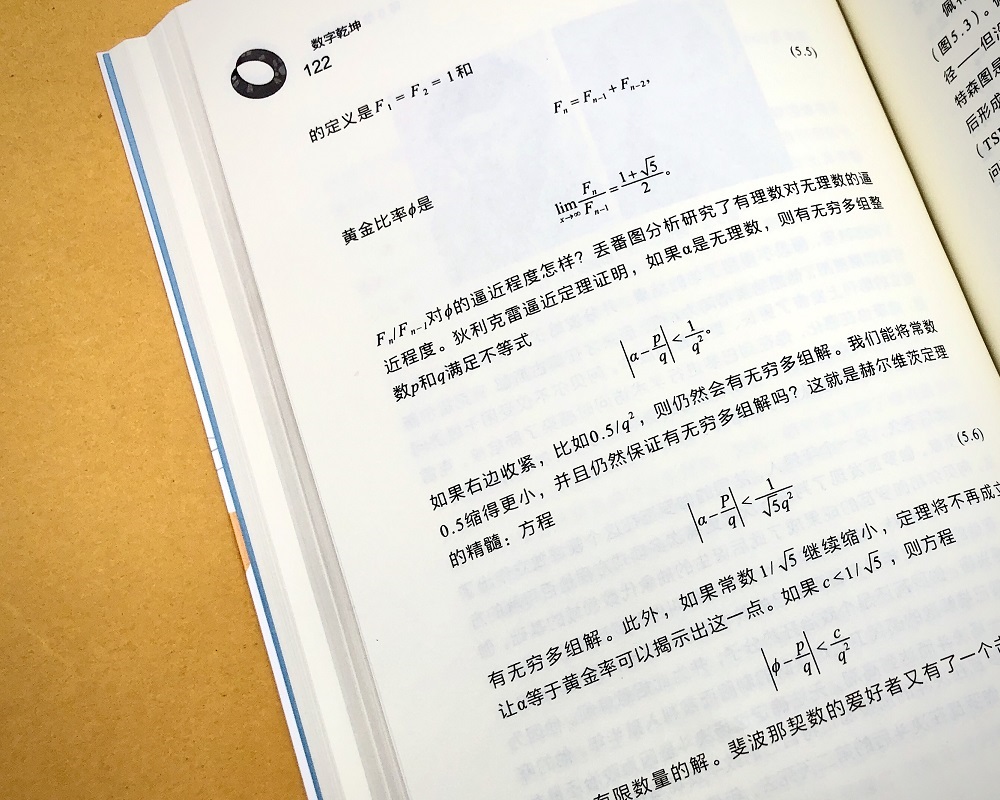 数字乾坤
122
的定义是F₁ = F₂ = 1和
Fₙ = Fₙ₋₁ + Fₙ₋₂, (5.5)
黄金比率ϕ是
lim x→∞ Fₙ/Fₙ₋₁ = (1+√5)/2。
Fₙ/Fₙ₋₁对ϕ的逼近程度怎样？丢番图分析研究了有理数对无理数的逼
近程度。狄利克雷逼近定理证明，如果α是无理数，则有无穷多组整
数p和q满足不等式
|α − p/q| < 1/q²。
如果右边收紧，比如0.5/q²，则仍然会有无穷多组解。我们能将常数
0.5缩得更小，并且仍然保证有无穷多组解吗？这就是赫尔维茨定理
的精髓：方程
|α − p/q| < 1/√5q² (5.6)
有无穷多组解。此外，如果常数1/√5 继续缩小，定理将不再成立
让α等于黄金率可以揭示出这一点。如果 c < 1/√5 ，则方程
|ϕ − p/q| < c/q²
有限数量的解。斐波那契数的爱好者又有了一个
（图5.3）。
径——但
特森图是
后形成
（TS
问